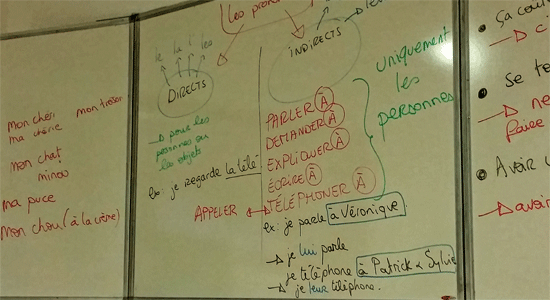 mon cheri mon trésor
ma chérie
mon chat
minou
ma puce
mon chou (à la crème)
Les
le la l' les
DIRECTS
→ pour les
personnes ou
les objets
ex: je regarde la télé
APPELER ↔
INDIRECTS
PARLER À
DEMANDER À
EXPLIQUER À
ÉCRIRE À
TÉLÉPHONER À
uniquement
les
personnes
ex: je parle à Véronique.
→ je lui parle
je téléphone à Patrick & Sylvie
→ je leur téléphone.
Ça
→ c'
Se
→
faire
Avoir
→ avoir